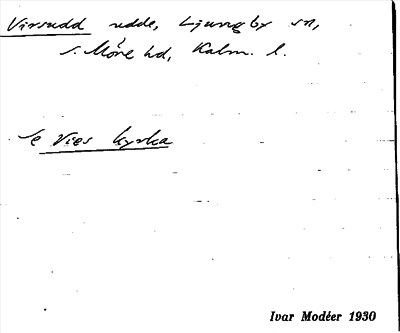 Virsudd udde, Ljungby sn,
s. Möre hd, Kalm. l.
Se Vies kyrka
Ivar Modéer 1930